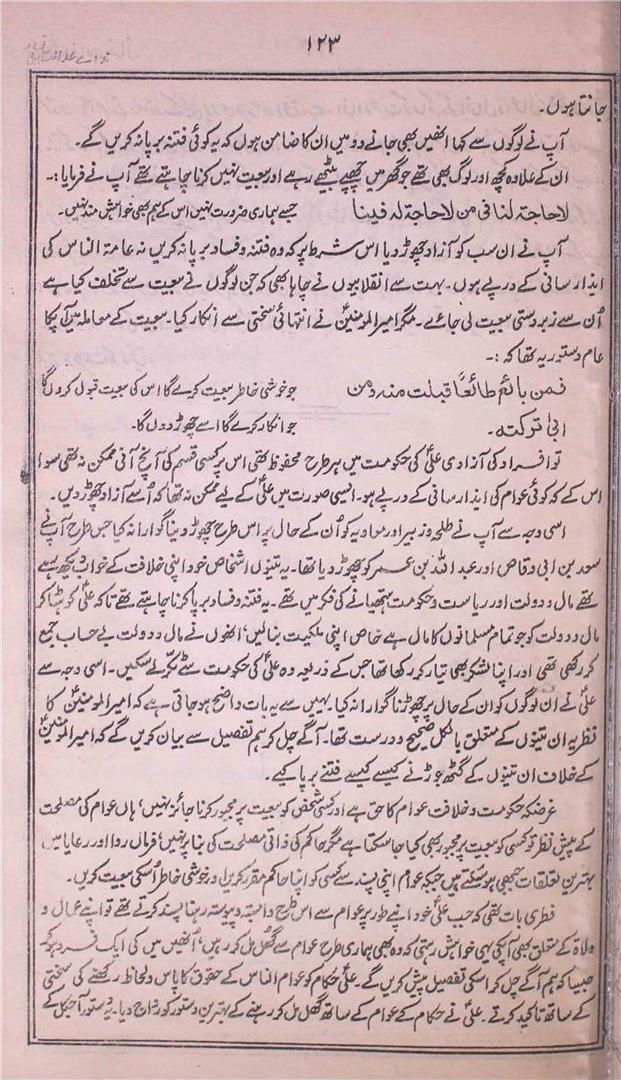 ۱۲۳
جانتا ہوں۔
آپ نے لوگوں سے کہا انھیں بھی جانے دو میں ان کا ضامن ہوں کہ یہ کوئی فتنہ برپا نہ کریں گے۔
ان کے علاوہ کچھ اور لوگ بھی تھے جو گھر میں چھپے بیٹھے رہے اور بیعت نہیں کرنا چاہتے تھے آپ نے فرمایا:۔
لاحاجۃ لنا فی من لاحاجۃ لہ فینا جسے ہماری ضرورت نہیں اس کے ہم بھی خواہش مند نہیں۔
آپ نے ان سب کو آزاد چھوڑ دیا اس شرط پر کہ وہ فتنہ و فساد برپا نہ کریں نہ عامۃ الناس کی
ایذا رسانی کے درپے ہوں۔ بہت سے انقلابیوں نے چاہا بھی کہ جن لوگوں نے بیعت سے تخلف کیا ہے
اُن سے زبردستی بیعت لی جائے۔ مگر امیرالمومنینؑ نے انتہائی سختی سے انکار کیا۔ بیعت کے معاملہ میں آپ کا
عام دستور یہ تھا کہ:۔
فمن بائع طائعًا قبلت منہ ومن جو خوشی خاطر بیعت کرے گا اس کی بیعت قبول کروں گا
ابیٰ ترکتہ۔ جو انکار کرے گا اسے چھوڑ دوں گا۔
تو افراد کی آزادی علیؑ کی حکومت میں ہر طرح محفوظ تھی اس پر کسی قسم کی آنچ آنی ممکن نہ تھی سوا
اس کے کہ کوئی عوام کی ایذا رسانی کے درپے ہو۔ ایسی صورت میں علیؑ کے لیے ممکن نہ تھا کہ اُسے آزاد چھوڑ دیں۔
اسی وجہ سے آپ نے طلحہ و زبیر اور معاویہ کو اُن کے حال پر اس طرح چھوڑ دینا گوارا نہ کیا جس طرح آپ نے
سعد بن ابی وقاص اور عبداللہ بن عمر کو چھوڑ دیا تھا۔ یہ تینوں اشخاص خود اپنی خلافت کے خواب دیکھ رہے
تھے مال و دولت اور ریاست و حکومت ہتھیانے کی فکر میں تھے۔ یہ فتنہ و فساد برپا کرنا چاہتے تھے تاکہ علیؑ کو ہٹا کر
مال و دولت کو جو تمام مسلمانوں کا مال ہے خاص اپنی ملکیت بنا لیں، انھوں نے مال و دولت بے حساب جمع
کر رکھی تھی اور اپنا لشکر بھی تیار کر رکھا تھا جس کے ذریعہ وہ علیؑ کی حکومت سے ٹکر لے سکیں۔ اسی وجہ سے
علیؑ نے ان لوگوں کو ان کے حال پر چھوڑنا گوارا نہ کیا۔ یہیں سے یہ بات واضح ہو جاتی ہے کہ امیرالمومنینؑ کا
نظریہ ان تینوں کے متعلق بالکل صحیح و درست تھا۔ آگے چل کر ہم تفصیل سے بیان کریں گے کہ امیرالمومنینؑ
کے خلاف ان تینوں کے گٹھ جوڑ نے کیسے کیسے فتنے برپا کیے۔
غرضکہ حکومت و خلافت عوام کا حق ہے اور کسی شخص کو بیعت پر مجبور کرنا جائز نہیں، ہاں عوام کی مصلحت
کے پیش نظر تو کسی کو بیعت پر مجبور بھی کیا جا سکتا ہے مگر حاکم کی ذاتی مصلحت کی بنا پر نہیں، فرماں روا اور رعایا میں
بہترین تعلقات جبھی ہو سکتے ہیں جبکہ عوام اپنی پسند سے کسی کو اپنا حاکم مقرر کریں اور خوشی خاطر اُسکی بیعت کریں۔
فطری بات تھی کہ جب علیؑ خود اپنے طور پر عوام سے اس طرح وابستہ و پیوستہ رہنا پسند کرتے تھے تو اپنے عمال و
ولاۃ کے متعلق بھی آپکی یہی خواہش رہتی کہ وہ بھی ہماری طرح عوام سے گھل مل کر رہیں، اُنھیں میں کی ایک فرد ہو کر
جیسا کہ ہم آگے چل کر اسکی تفصیل پیش کریں گے۔ علیؑ حکام کو عوام الناس کے حقوق کا پاس و لحاظ رکھنے کی سختی
کے ساتھ تاکید کرتے۔ علیؑ نے حکام کے عوام کے ساتھ گھل مل کر رہنے کے بہترین دستور کو رواج دیا۔ یہ دستور آجکل کے